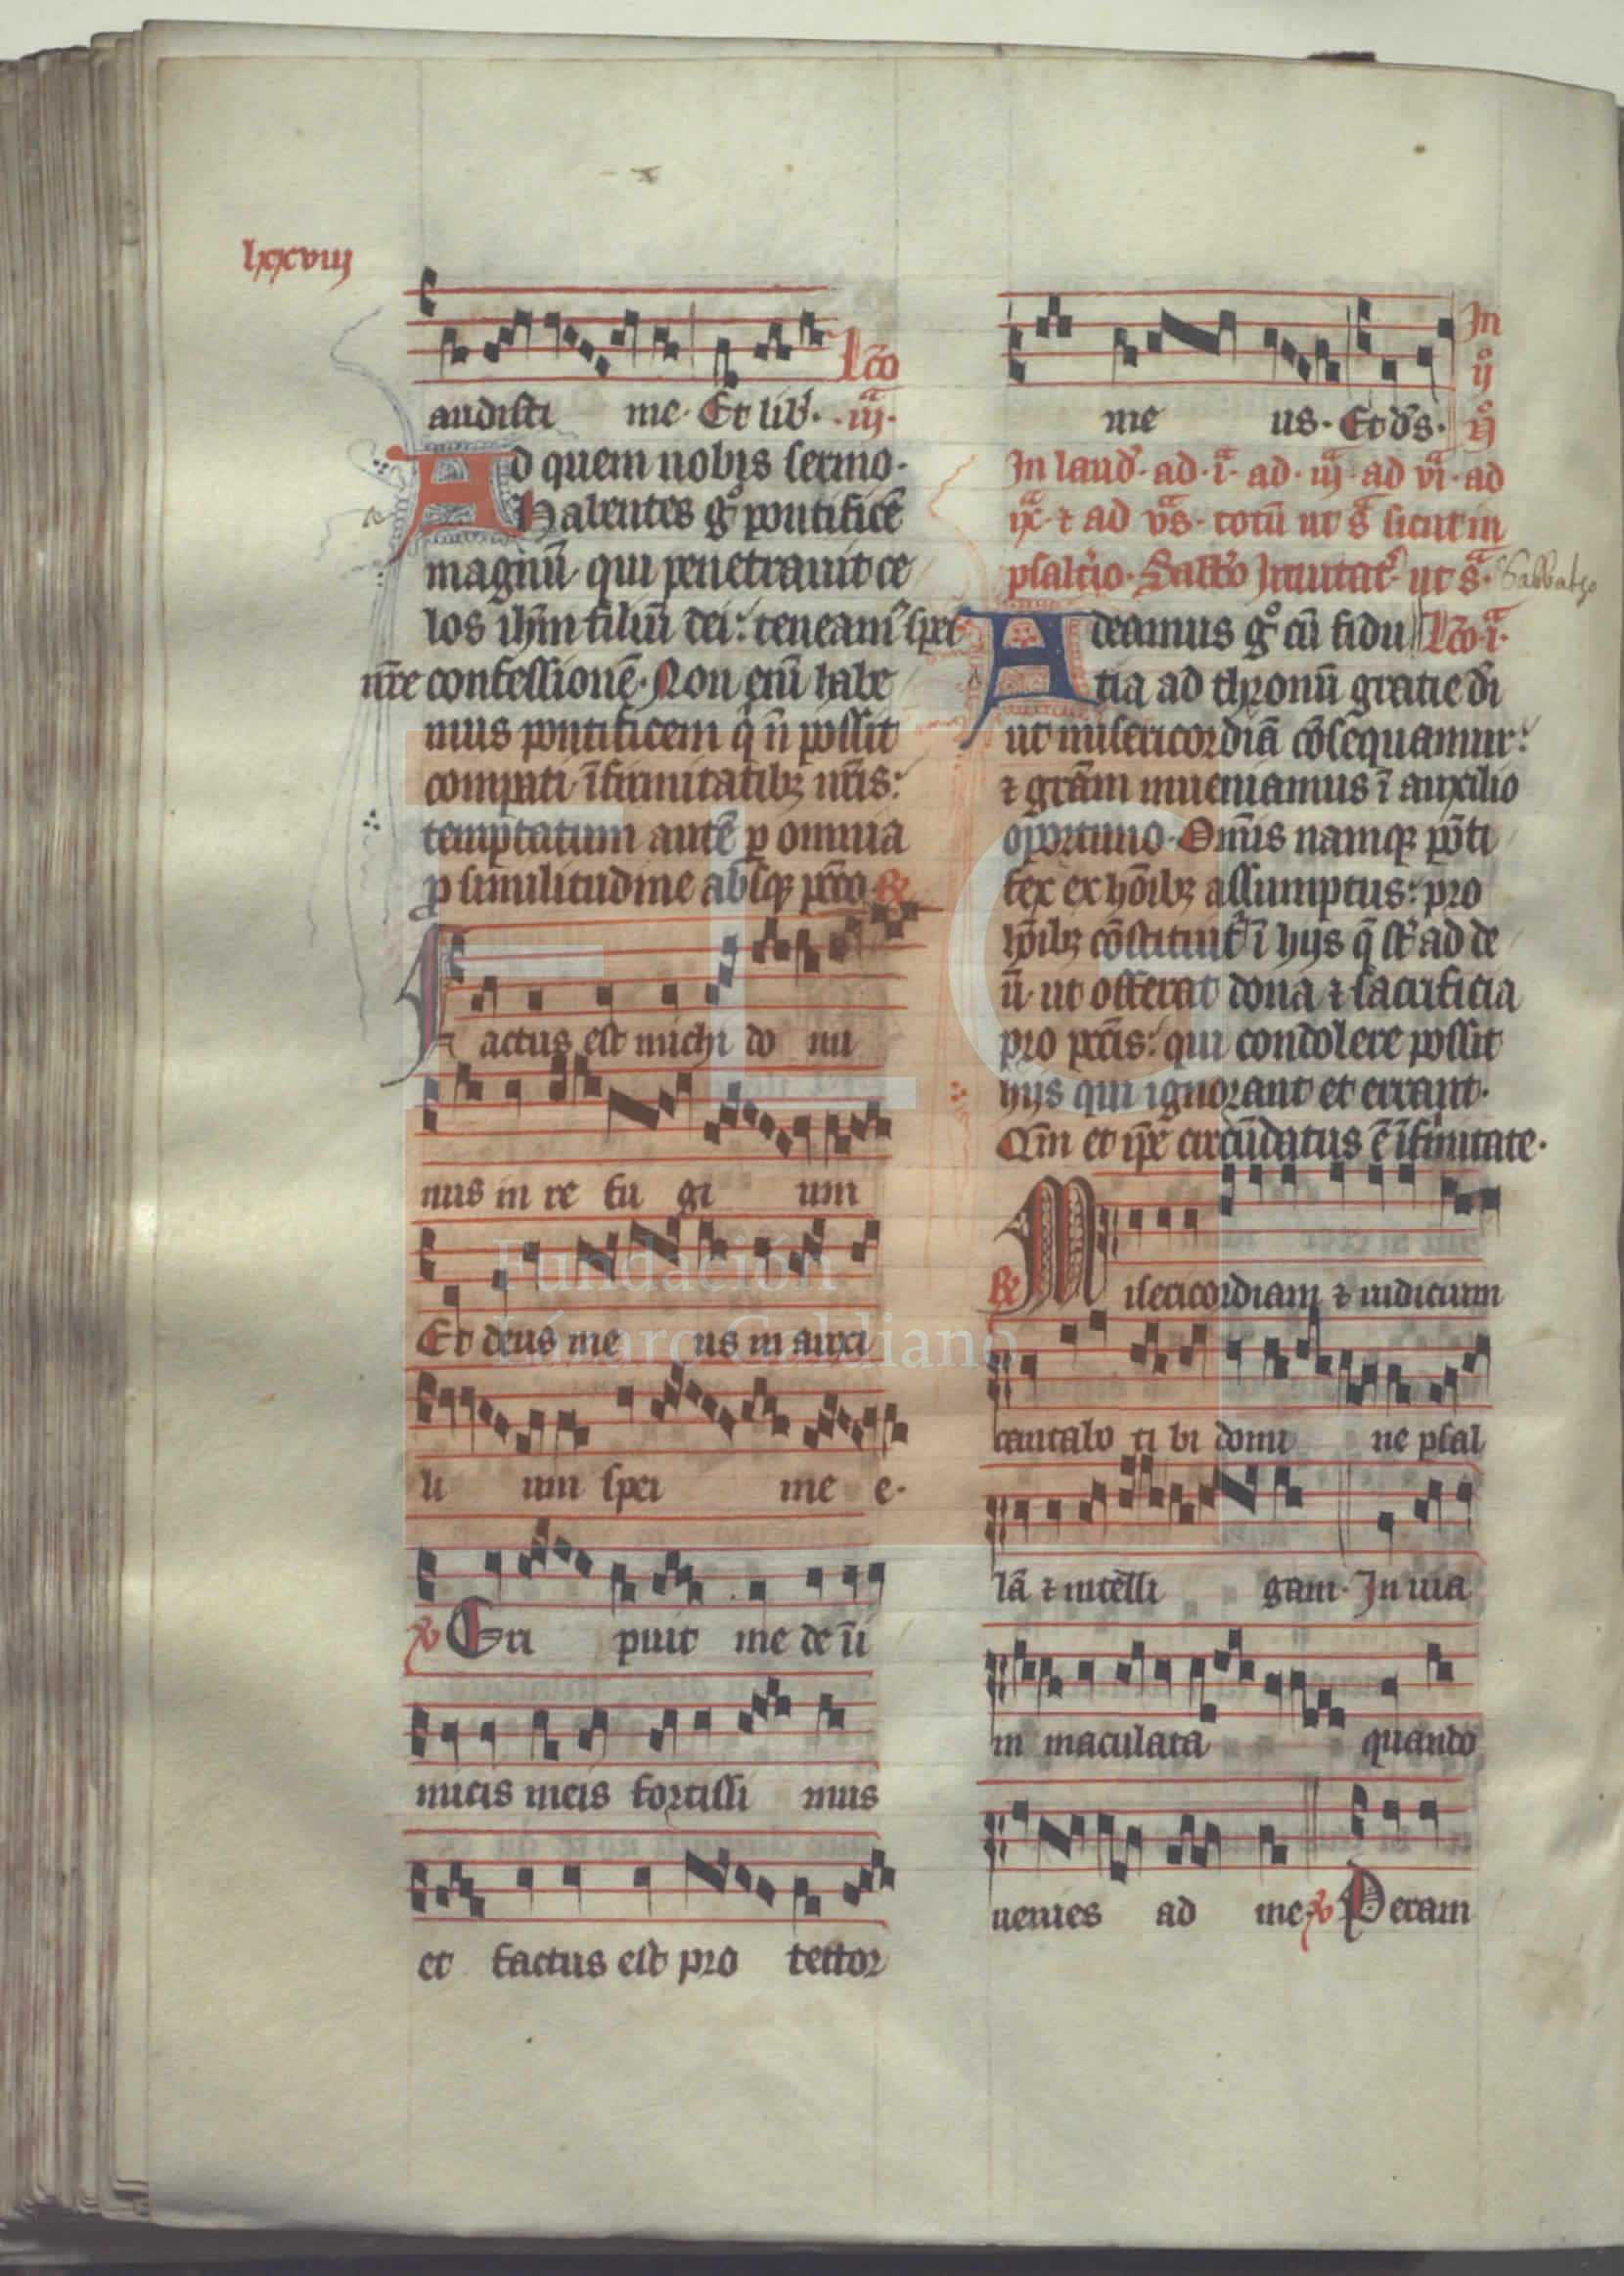 lxxviij
audisti me. Et lib̛. Lc̄o .iij.ᵃ
Ad quem nobis sermo.
Habentes gͦ pontificē
magnū qui penetrauit ce
los ihm̄ filiū dei: teneam᾿ spei
nr̄e confessionē. Non enī habe
mus pontificem q̄ n̄ possit
compati īfirmitatibꝫ nr̄is:
temptatum autē ꝑ omnia
ꝑ similitudine absqꝫ pcc̄o. ℞
Factus est michi do mi
nus in re fu gi um
Et deus me us in auxi
li um spei me e.
℣ Eri puit me de ī
nimicis meis fortissi mus
et factus est pro tector
me us. Et ds̄. In ijͦ
In laud̛. ad .iᵃ. ad .iijᵃ. ad viᵃ. ad
ixᵃ. ⁊ ad vs̄. totū ut sᵃ sicut in
psalt̛io. Sabb̄o Inuitat̛. ut sᵃ. Sabbatho
Adeamus gͦ cū fidu Lc̄o .iᵃ.
tia ad thronū gratie di
ut misericordiā cōsequamur:
⁊ grām inueniamus ī auxilio
oportuno. Omīs namqꝫ pōti
fex ex hōibꝫ assumptus: pro
hōibꝫ cōstituit᾿ ī hijs q̄ st̄ ad de
ū. ut offerat dona ⁊ sacrificia
pro pcc̄is: qui condolere possit
hijs qui ignorant et errant.
Qm̄ et ip̄e circūdatus ē īfirmitate.
℞ Misericordiam ⁊ iudicium
cantabo ti bi domi ne psal
lā ⁊ intelli gam. In uia
in maculata quando
uenies ad me. ℣ Peram
Fundación
Lázaro Galdiano
FLG